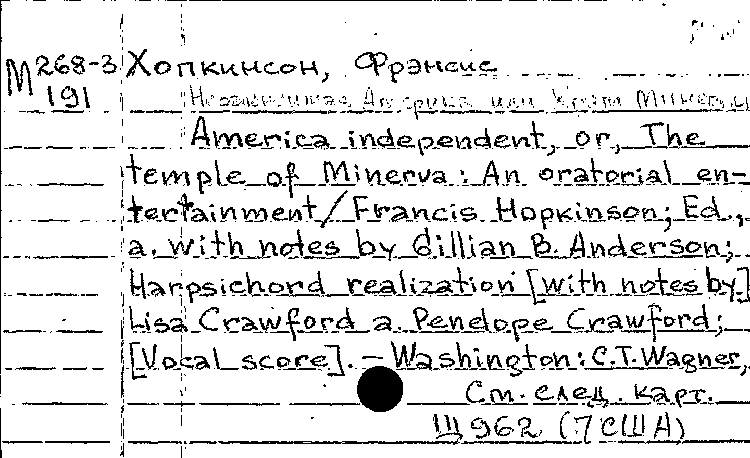 М 268-3 Хопкинсон, Фрэнсис
191 Независимая Америка или Храм Минервы
America independent, or, The
temple of Minerva: An oratorial en-
tertainment/Francis Hopkinson; Ed.,
a. with notes by Gillian B. Anderson;
Harpsichord realization [with notes by]
Lisa Crawford a. Penelope Crawford;
[Vocal score]. – Washington: C.T. Wagner,
См. след. карт.
Щ962 (7США)